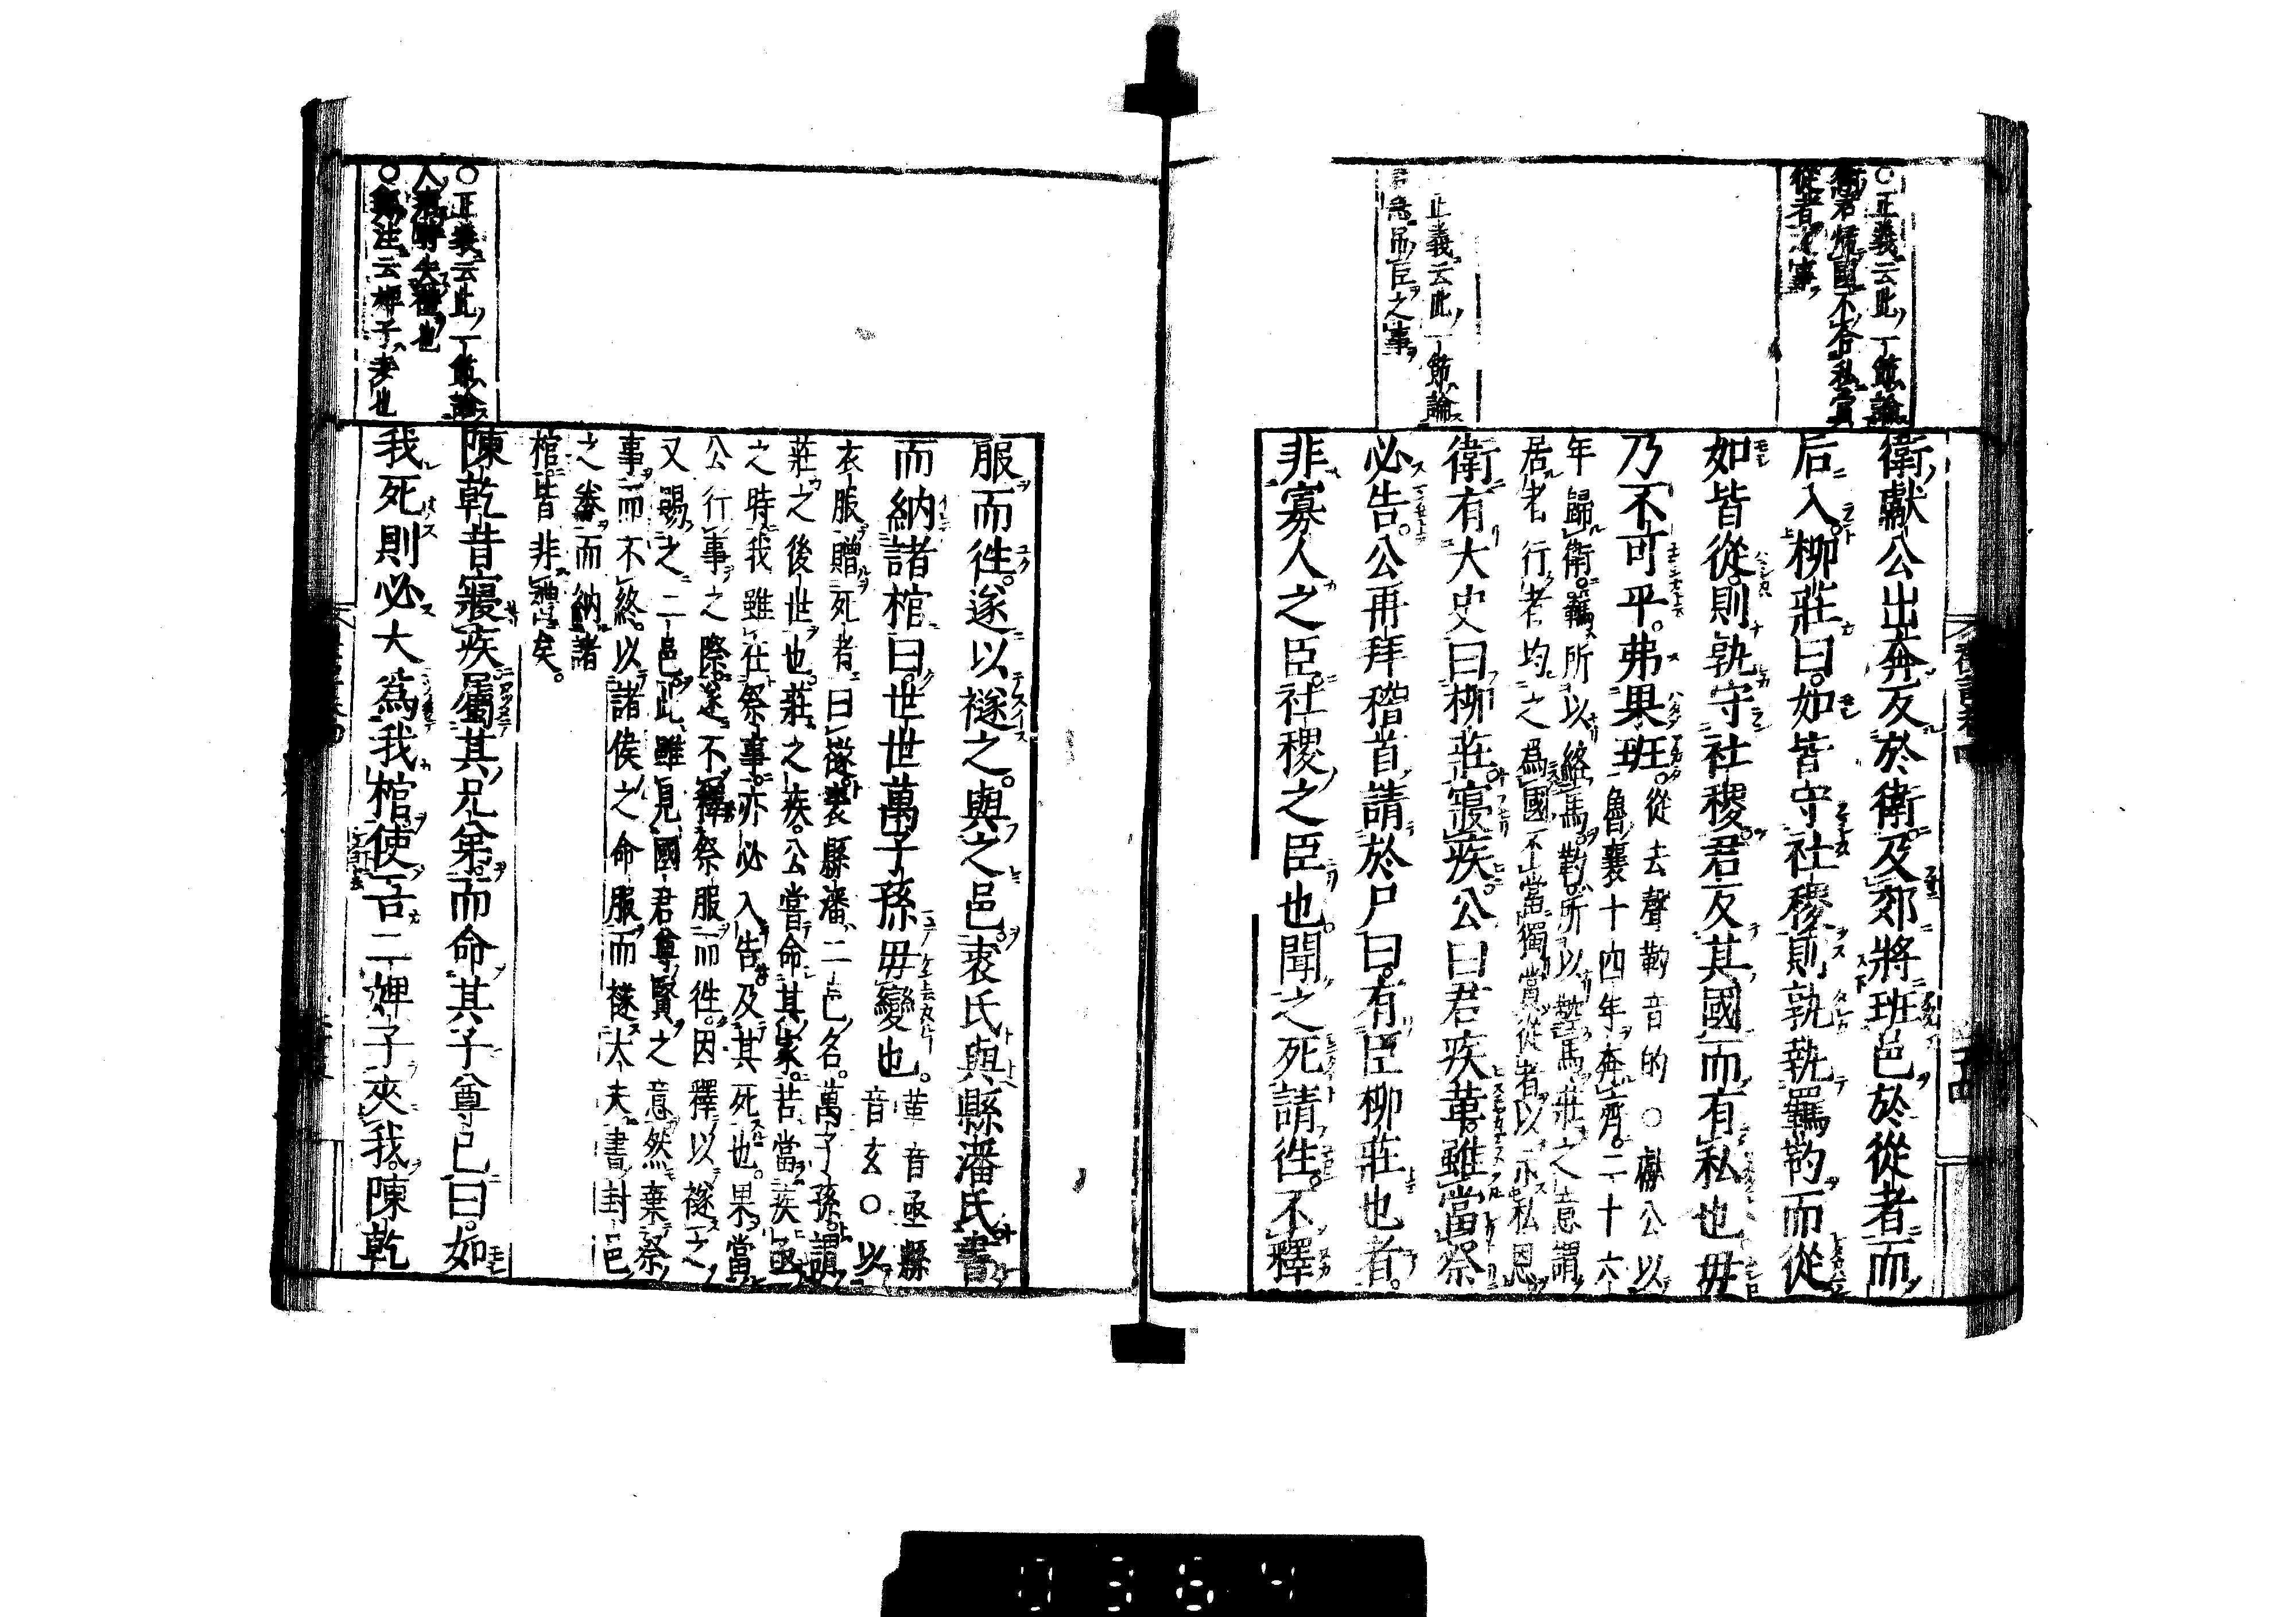 ○正義云此一節論
衛君歸國不合私賞
從者之事
衛獻公出奔反於衛及郊將班邑於從者而
后入柳莊曰如皆守社稷則孰執羈靮而從
如皆從則孰守社稷君反其國而有私也毋
乃不可乎弗果班
從去聲靮音的○獻公以
魯襄十四年奔齊二十六
年歸衛羈所以絡馬靮所以鞚馬莊之意謂
居者行者均之為國不當獨賞從者以示私恩
正義云此一節論
君急弔臣之事
衛有大史曰柳莊寢疾公曰君疾革雖當祭
必告公再拜稽首請於尸曰有臣柳莊也者
非寡人之臣社稷之臣也聞之死請往不釋
服而往遂以襚之與之邑裘氏與縣潘氏書
而納諸棺曰世世萬子孫毋變也
革音亟縣
音玄○以
衣服贈死者曰襚裘縣潘二邑名萬子孫謂
莊之後世也莊之疾公嘗命其家若當疾亟
之時我雖在祭事亦必入告及其死也果當
公行事之際遂不釋祭服而往因釋以襚之
又賜之二邑此雖見國君尊賢之意然棄祭
事而不終以諸侯之命服而襚大夫書封邑
之券而納諸
棺皆非禮矣
○正義云此一節論
人病時失禮也
○鄭注云婢子妾也
陳乾昔寢疾屬其兄弟而命其子尊已曰如
我死則必大為我棺使吾二婢子夾我陳乾
0364